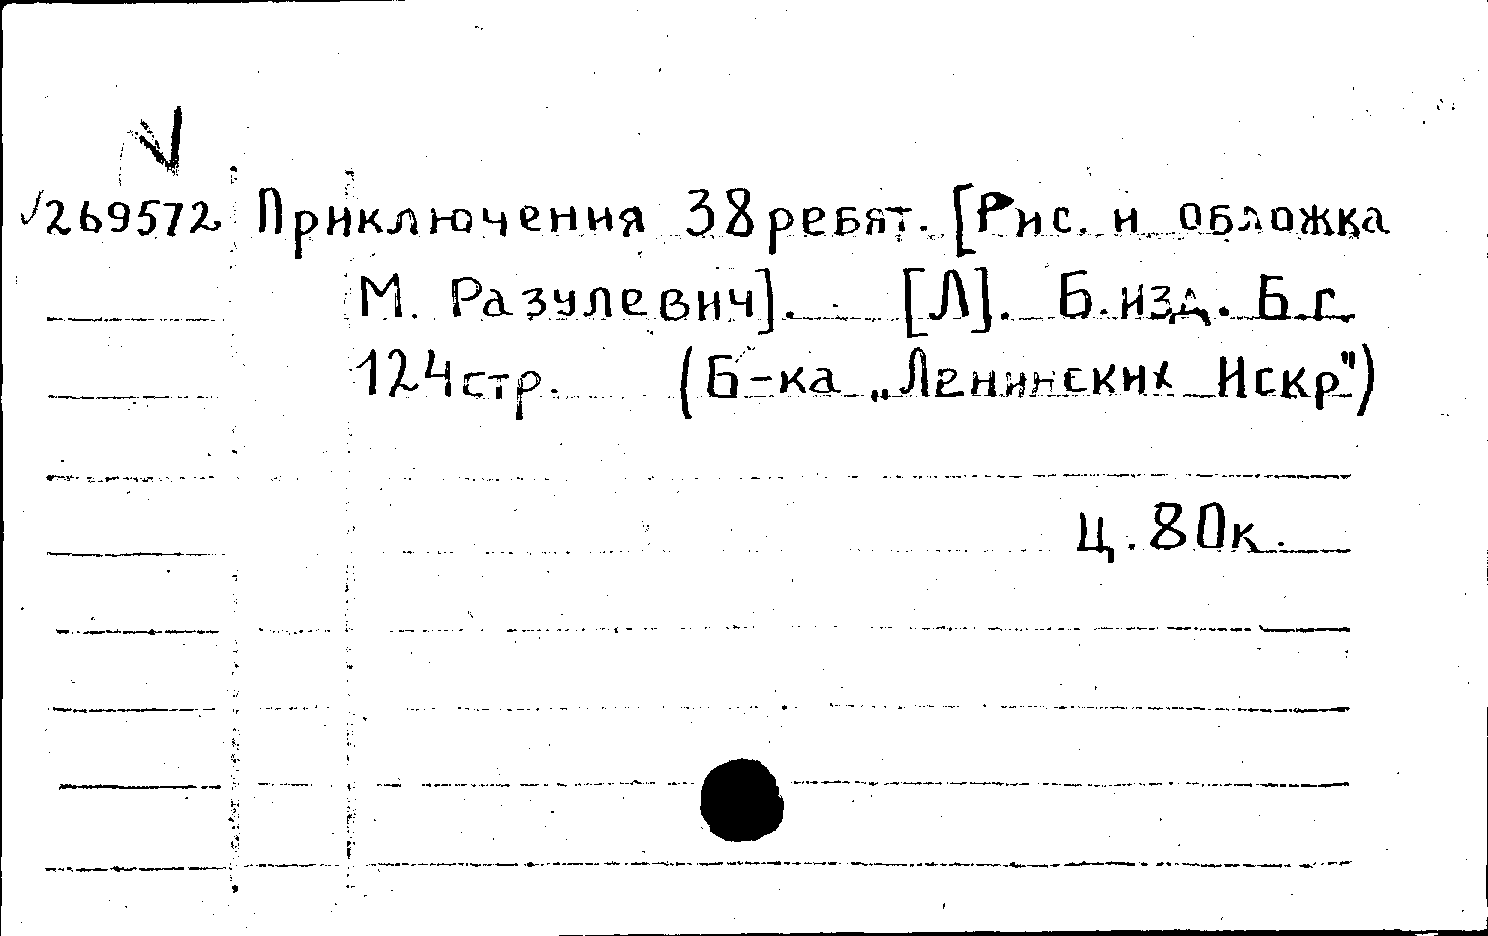 V
√269572 Приключения 38 ребят. [Рис. и обложка
М. Разулевич]. [Л]. Б.изд. Б.г.
124стр. (Б-ка „Ленинских Искр")
Ц. 80к.